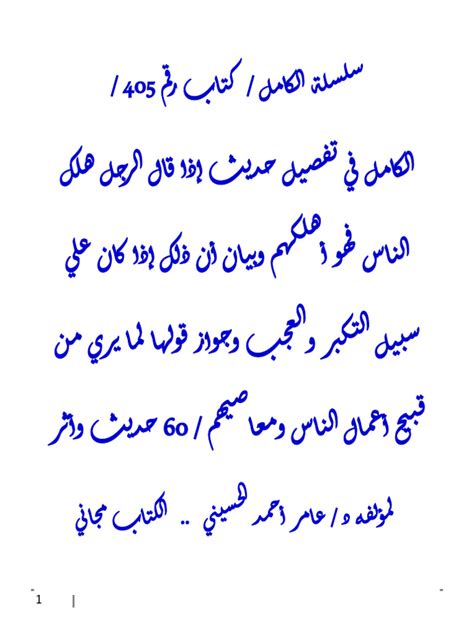 سلسلة الكامل / كتاب رقم 405 /
الكامل في تفصيل حديث إذا قال الرجل هلك
الناس فهو أهلكهم وبيان أن ذلك إذا كان علي
سبيل التكبر والعجب وجواز قولها لما يري من
قبيح أعمال الناس ومعاصيهم / 60 حديث وأثر
لمؤلفه د / عامر أحمد الحسيني .. الكتاب مجاني
1 |